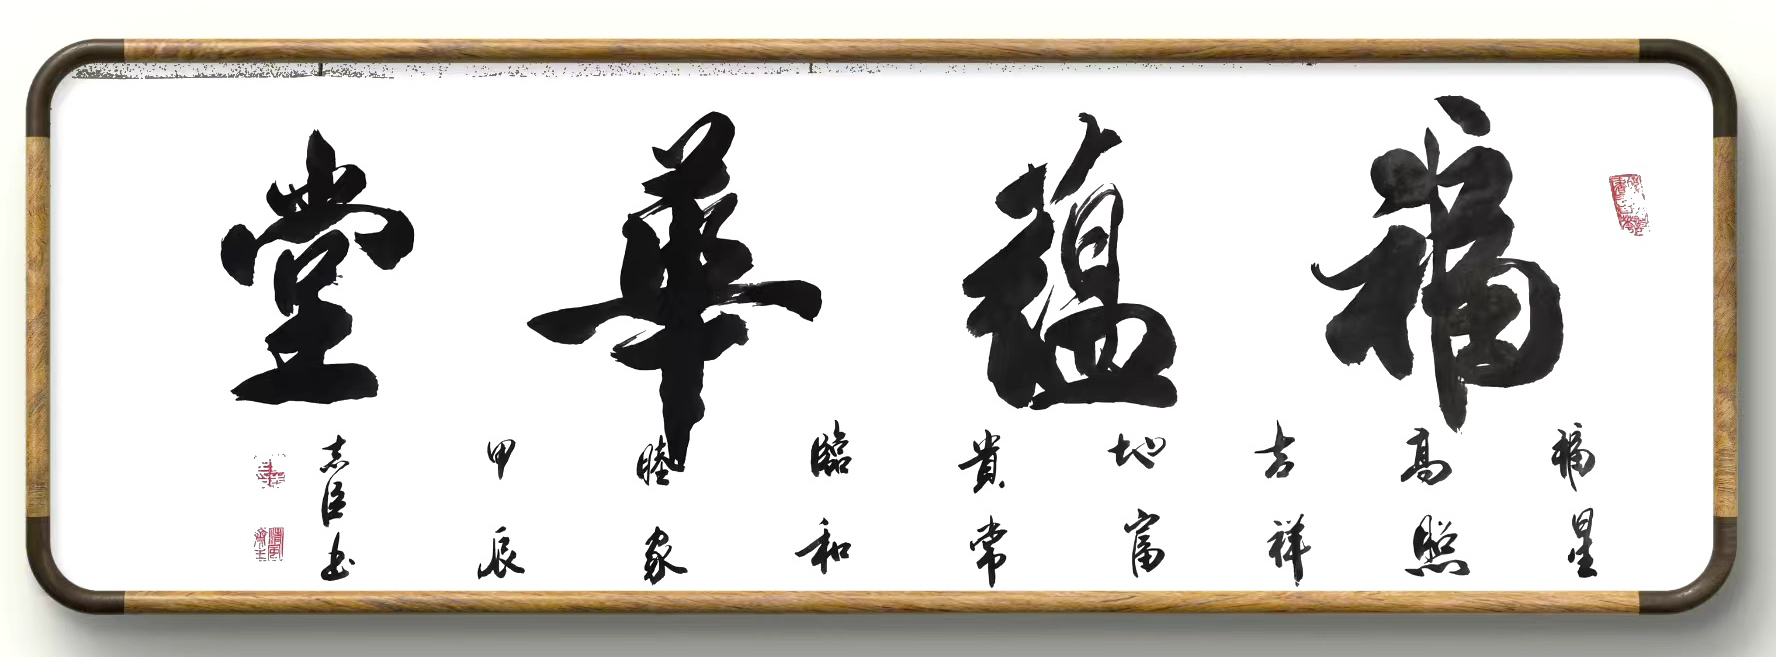 福蘊華堂
福星
高照
吉祥
地富
貴常
臨和
睦家
甲辰
志臣书